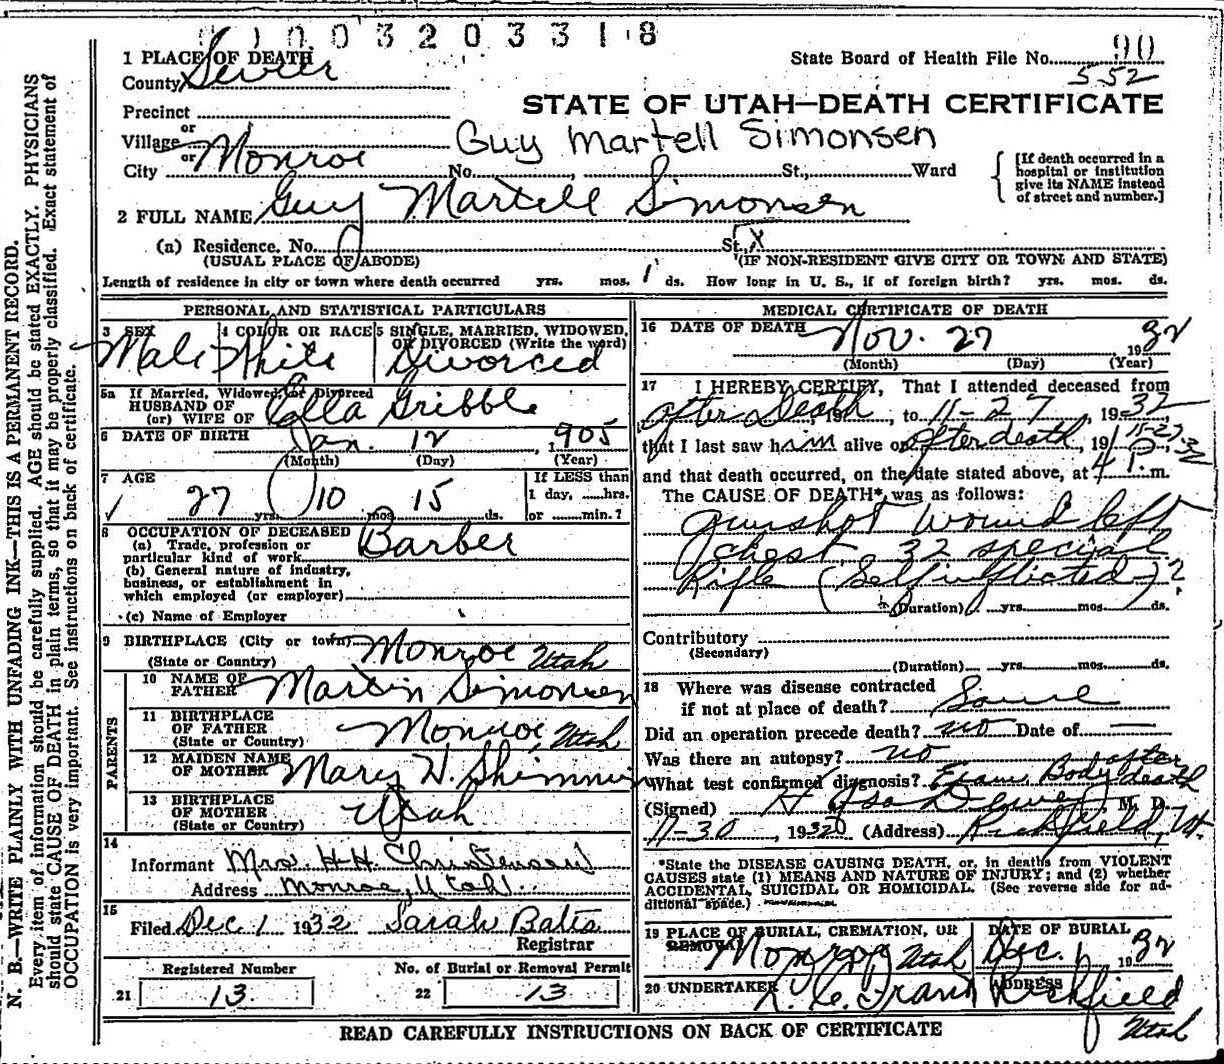 0 1 0 0 3 2 0 3 3 1 8
1 PLACE OF DEATH
County Sevier
State Board of Health File No. 90
552
Precinct
STATE OF UTAH—DEATH CERTIFICATE
or
Village
Guy Martell Simonsen
or
City Monroe No. , St., Ward
[If death occurred in a hospital or institution give its NAME instead of street and number.]
2 FULL NAME Guy Martell Simonsen
(a) Residence. No. St, X
(USUAL PLACE OF ABODE) (IF NON-RESIDENT GIVE CITY OR TOWN AND STATE)
Length of residence in city or town where death occurred yrs. mos. 1 ds. How long in U. S., if of foreign birth? yrs. mos. ds.
PERSONAL AND STATISTICAL PARTICULARS
3 SEX Male
4 COLOR OR RACE White
5 SINGLE, MARRIED, WIDOWED, OR DIVORCED (Write the word) Divorced
5a If Married, Widowed, or Divorced
HUSBAND OF
(or) WIFE OF Ella Gribble
6 DATE OF BIRTH Jan. 12, 1905
(Month) (Day) (Year)
7 AGE
27 yrs. 10 mos. 15 ds.
If LESS than
1 day, ......hrs.
or ......min.?
8 OCCUPATION OF DECEASED
(a) Trade, profession or
particular kind of work Barber
(b) General nature of industry,
business, or establishment in
which employed (or employer)
(c) Name of Employer
9 BIRTHPLACE (City or town) Monroe Utah
(State or Country)
PARENTS
10 NAME OF
FATHER Martin Simonsen
11 BIRTHPLACE
OF FATHER Monroe, Utah
(State or Country)
12 MAIDEN NAME
OF MOTHER Mary W. Shimmin
13 BIRTHPLACE
OF MOTHER Utah
(State or Country)
14
Informant Mrs. H H Christensen
Address Monroe, Utah
15
Filed Dec 1 1932 Sarah Bates
Registrar
Registered Number
21 13
No. of Burial or Removal Permit
22 13
MEDICAL CERTIFICATE OF DEATH
16 DATE OF DEATH Nov. 27 1932
(Month) (Day) (Year)
17 I HEREBY CERTIFY, That I attended deceased from
after Death, 19 , to 11-27, 1932
that I last saw him alive on after death, 19 11-27-32
and that death occurred, on the date stated above, at 4 P. m.
The CAUSE OF DEATH*, was as follows:
Gunshot wound left
chest, 32 special
Rifle (Self inflicted) ?
(Duration) yrs. mos. ds.
Contributory
(Secondary)
(Duration) yrs. mos. ds.
18 Where was disease contracted
if not at place of death? Same
Did an operation precede death? no Date of —
Was there an autopsy? no
What test confirmed diagnosis? Exam. Body after death
(Signed) H Asa Dewey, M. D.
11-30, 1932 (Address) Richfield, Ut.
*State the DISEASE CAUSING DEATH, or, in deaths from VIOLENT
CAUSES state (1) MEANS AND NATURE OF INJURY; and (2) whether
ACCIDENTAL, SUICIDAL OR HOMICIDAL. (See reverse side for ad-
ditional space.)
19 PLACE OF BURIAL, CREMATION, OR REMOVAL Monroe Utah
DATE OF BURIAL Dec. 1 1932
20 UNDERTAKER L. C. Frand
ADDRESS Richfield Utah
READ CAREFULLY INSTRUCTIONS ON BACK OF CERTIFICATE
N. B.—WRITE PLAINLY WITH UNFADING INK—THIS IS A PERMANENT RECORD.
Every item of information should be carefully supplied. AGE should be stated EXACTLY. PHYSICIANS
should state CAUSE OF DEATH in plain terms, so that it may be properly classified. Exact statement of
OCCUPATION is very important. See instructions on back of certificate.